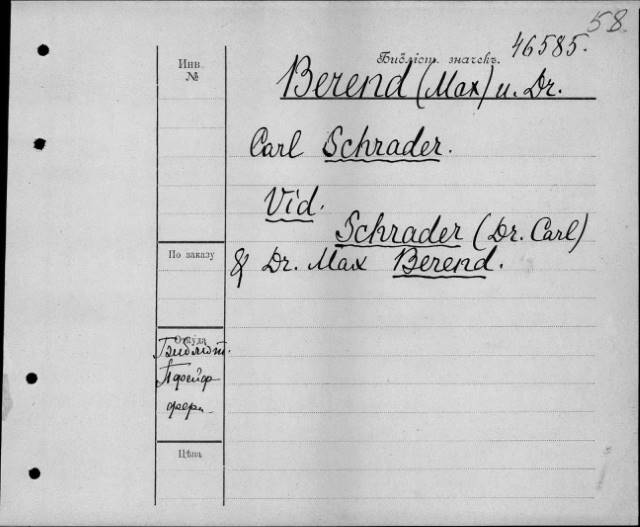 58.
46585.
Инв.
№
Библіот. значекъ.
Berend (Max) u. Dr.
Carl Schrader.
Vid.
Schrader (Dr. Carl)
& Dr. Max Berend.
По заказу
Откуда
Библіот.
Пфейф
фера
Цѣна